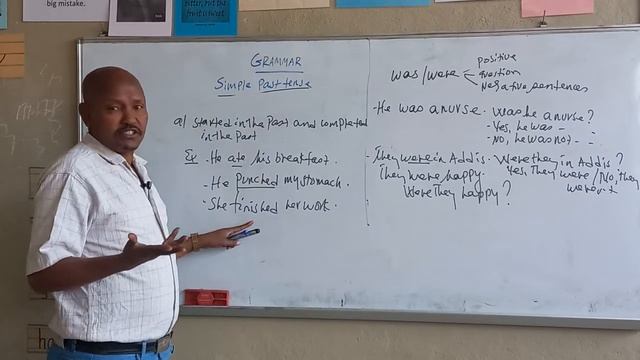 big mistake.
bitter, but the
fruit is sweet
GRAMMAR
Simple Past tense
a/ started in the Past and completed
in the Past
Ex . He ate his breakfast.
- He punched my stomach.
- She finished her work.
was/were
positive
question
negative sentences
- He was a nurse - Was he a nurse?
- Yes, he was -
- No, he was not -
- They were in Addis - Were they in Addis?
They were happy.
Yes, They were/No, they
weren't
Were They happy?
ho